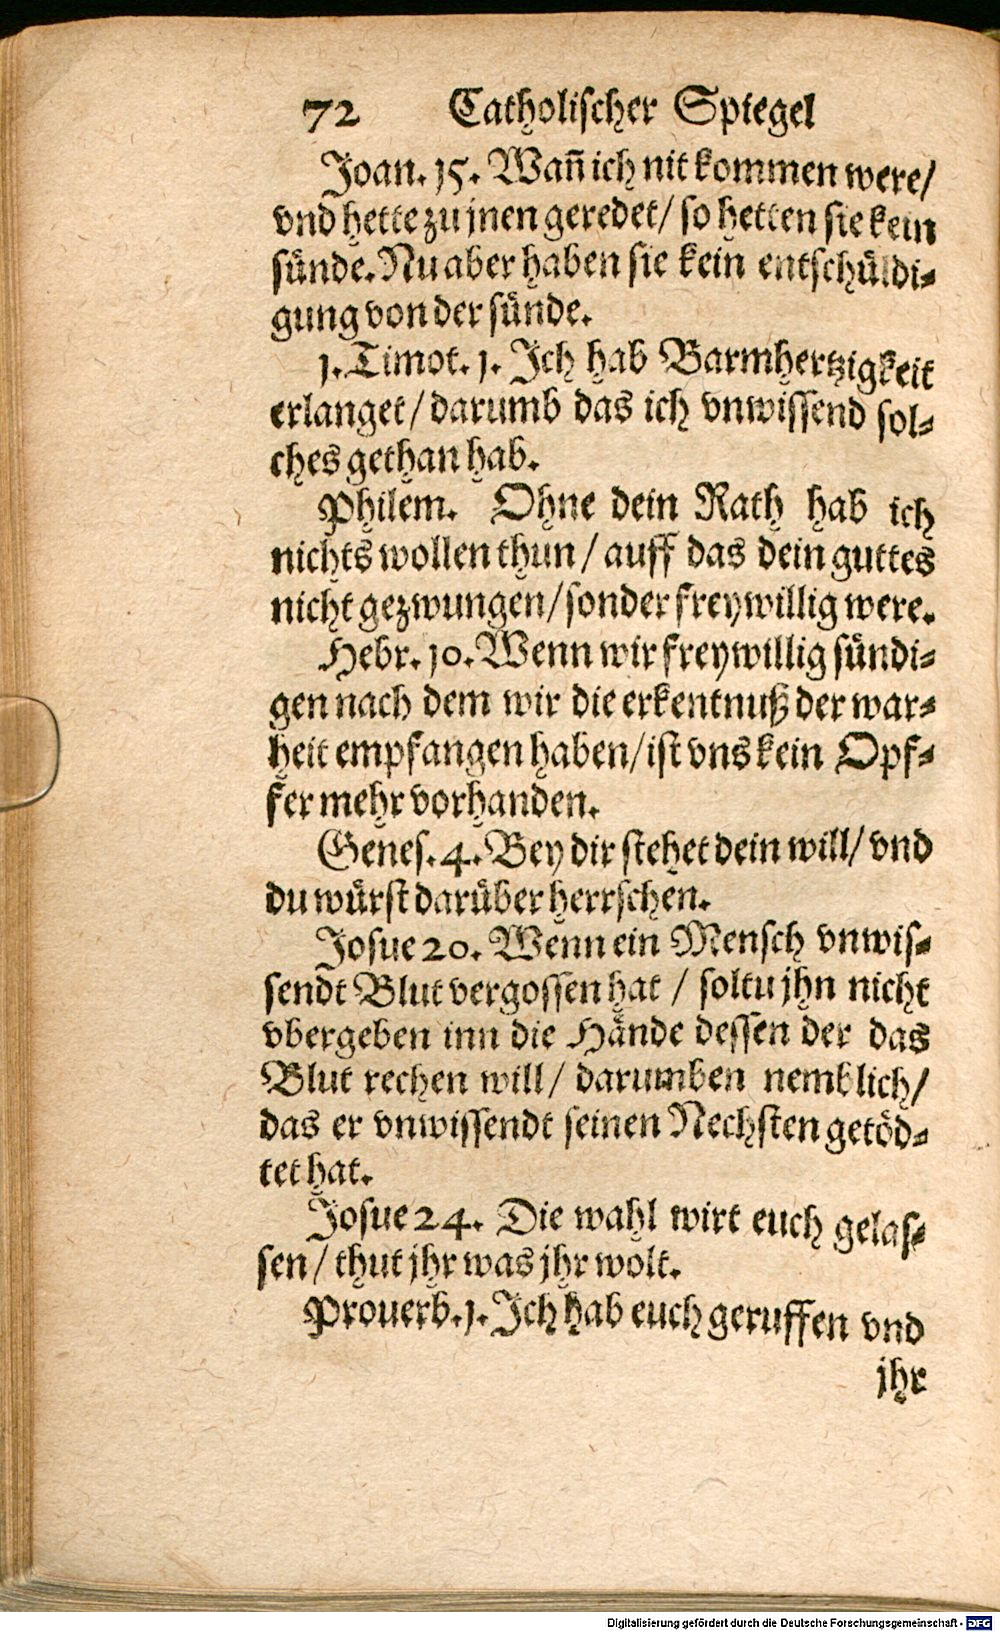 72 Catholischer Spiegel
Joan. 15. Wañ ich nit kommen were/
vnd hette zu jnen geredet/ so hetten sie kein
sünde. Nu aber haben sie kein entschüldi-
gung von der sünde.
1. Timot. 1. Ich hab Barmhertzigkeit
erlanget/ darumb das ich vnwissend sol-
ches gethan hab.
Philem. Ohne dein Rath hab ich
nichts wollen thun/ auff das dein guttes
nicht gezwungen/ sonder freywillig were.
Hebr. 10. Wenn wir freywillig sündi-
gen nach dem wir die erkentnuß der war-
heit empfangen haben/ ist vns kein Opf-
fer mehr vorhanden.
Genes. 4. Bey dir stehet dein will/ vnd
du würst darüber herrschen.
Josue 20. Wenn ein Mensch vnwis-
sendt Blut vergossen hat / soltu jhn nicht
vbergeben inn die Hände dessen der das
Blut rechen will/ darumben nemblich/
das er vnwissendt seinen Nechsten getöd-
tet hat.
Josue 24. Die wahl wirt euch gelas-
sen/ thut jhr was jhr wolt.
Prouerb. 1. Ich hab euch geruffen vnd
jhr
Digitalisierung gefördert durch die Deutsche Forschungsgemeinschaft - DFG